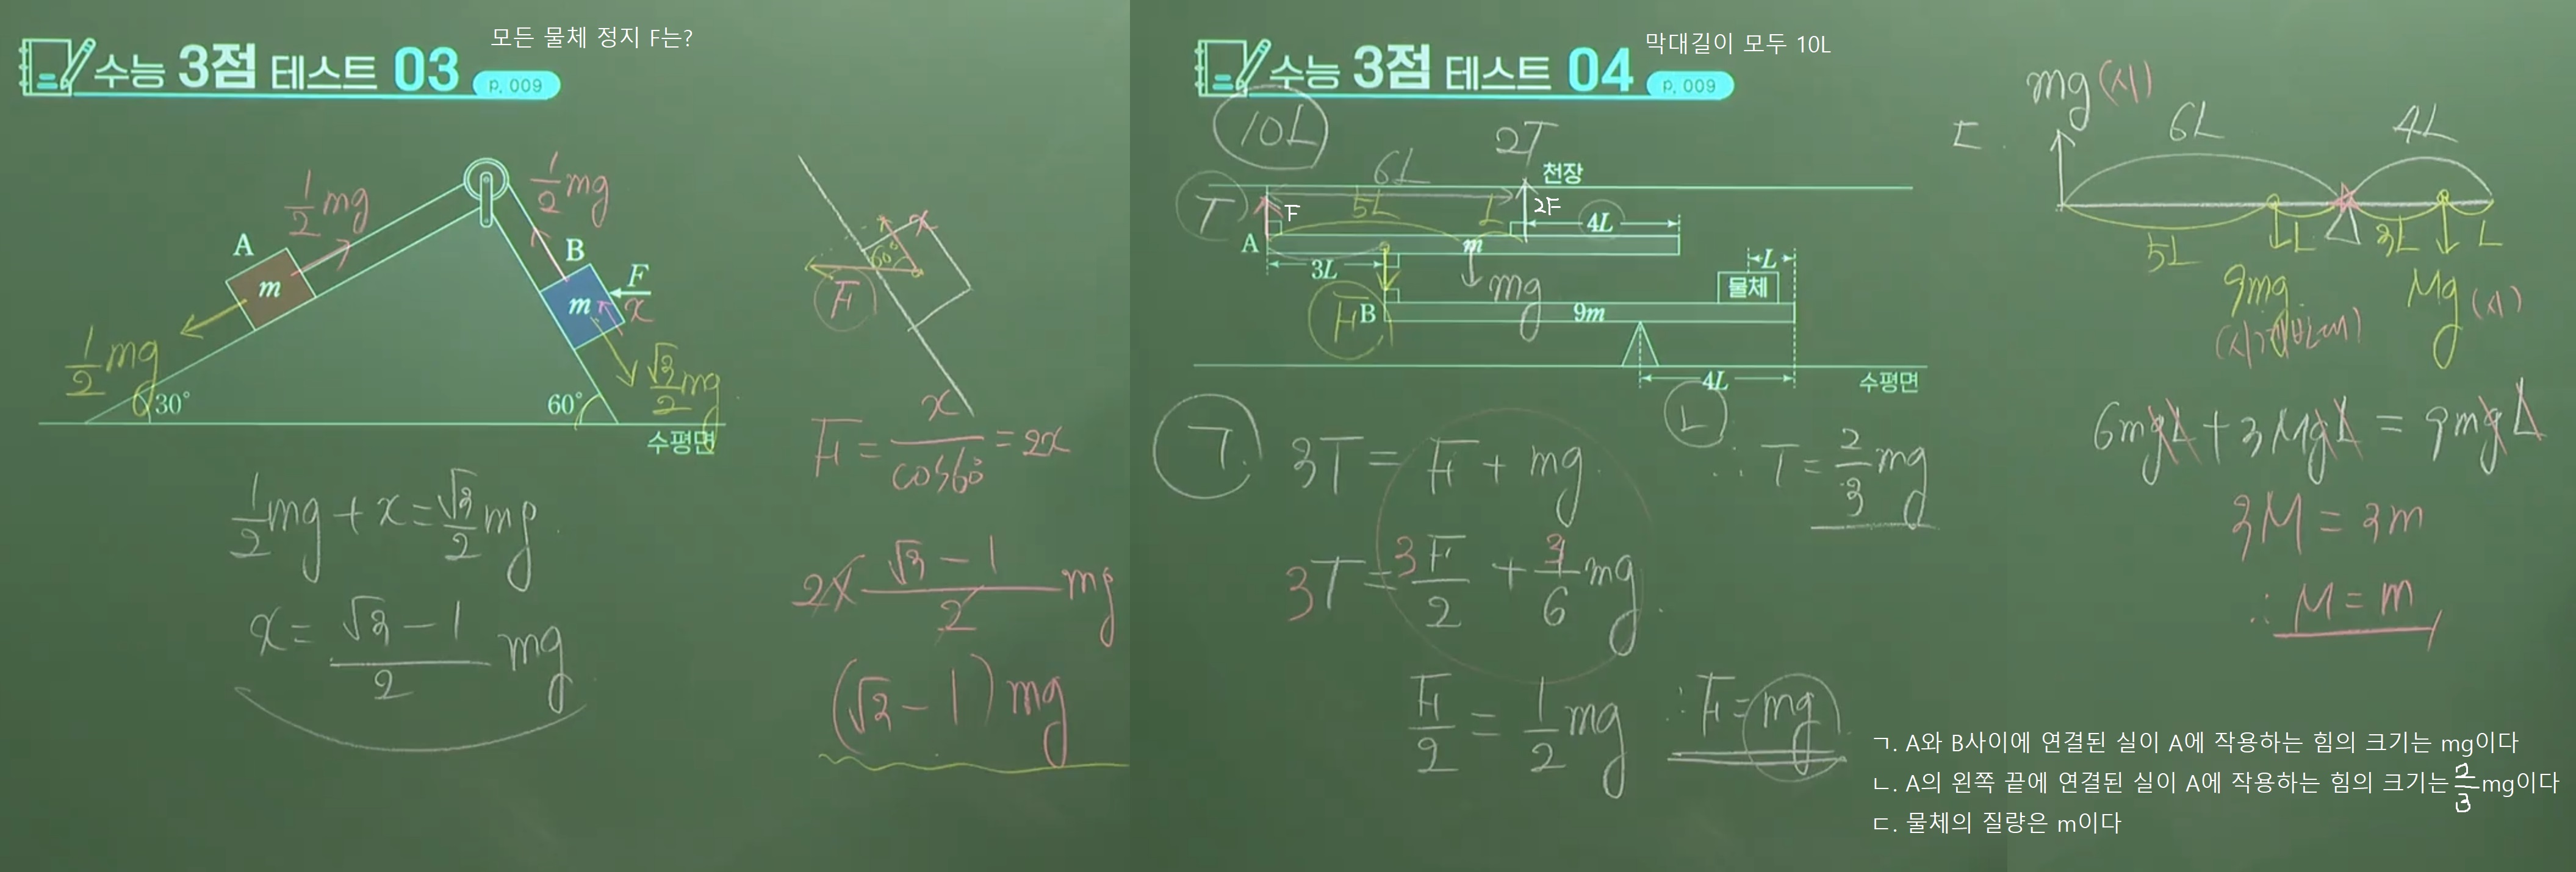 모든 물체 정지 F는?
수능 3점 테스트 03
p. 009
1/2 mg
1/2 mg
A
m
B
m
F
x
1/2 mg
√3/2 mg
30°
60°
수평면
1/2 mg + x = √3/2 mg
x = (√3 - 1)/2 mg
x
60°
F
F = x/cos60° = 2x
2 × (√3 - 1)/2 mg
(√3 - 1) mg
막대길이 모두 10L
수능 3점 테스트 04
p. 009
10L
2T
천장
6L
T
F
5L
L
2F
4L
A
m
3L
mg
L
물체
F
B
9m
4L
수평면
ㄱ. 3T = F + mg
3T = 3 F/2 + 3/6 mg
F/2 = 1/2 mg ∴ F = mg
ㄴ ∴ T = 2/3 mg
ㄷ.
mg (시)
6L
4L
5L
L
3L
L
9mg
(시계반대)
Mg (시)
6mgL + 3MgL = 9mgL
3M = 3m
∴ M = m
ㄱ. A와 B사이에 연결된 실이 A에 작용하는 힘의 크기는 mg이다
ㄴ. A의 왼쪽 끝에 연결된 실이 A에 작용하는 힘의 크기는 2/3 mg이다
ㄷ. 물체의 질량은 m이다